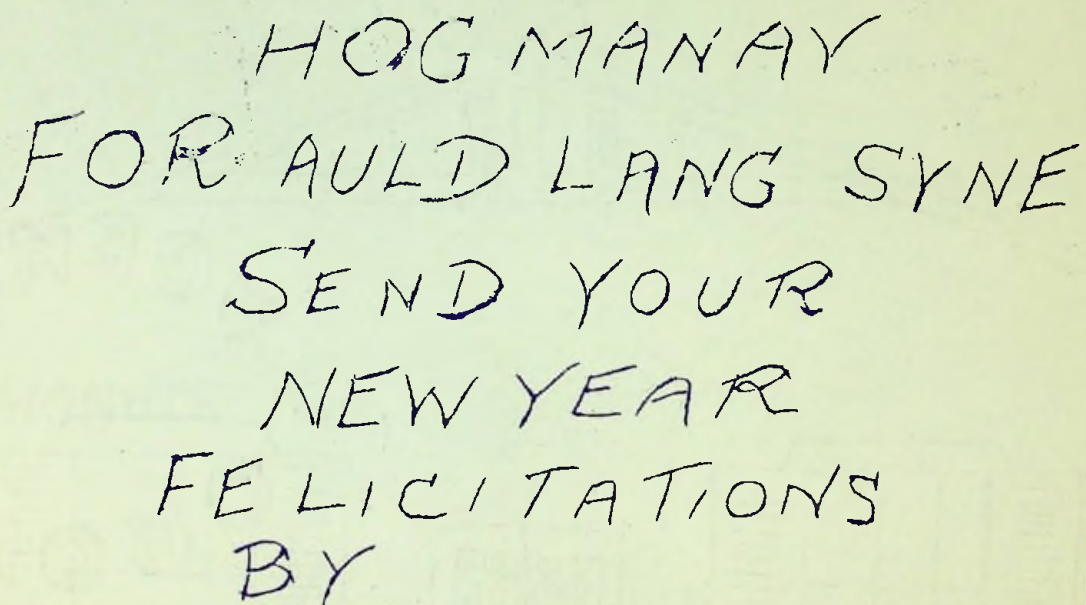 HOGMANAY
FOR AULD LANG SYNE
SEND YOUR
NEW YEAR
FELICITATIONS
BY